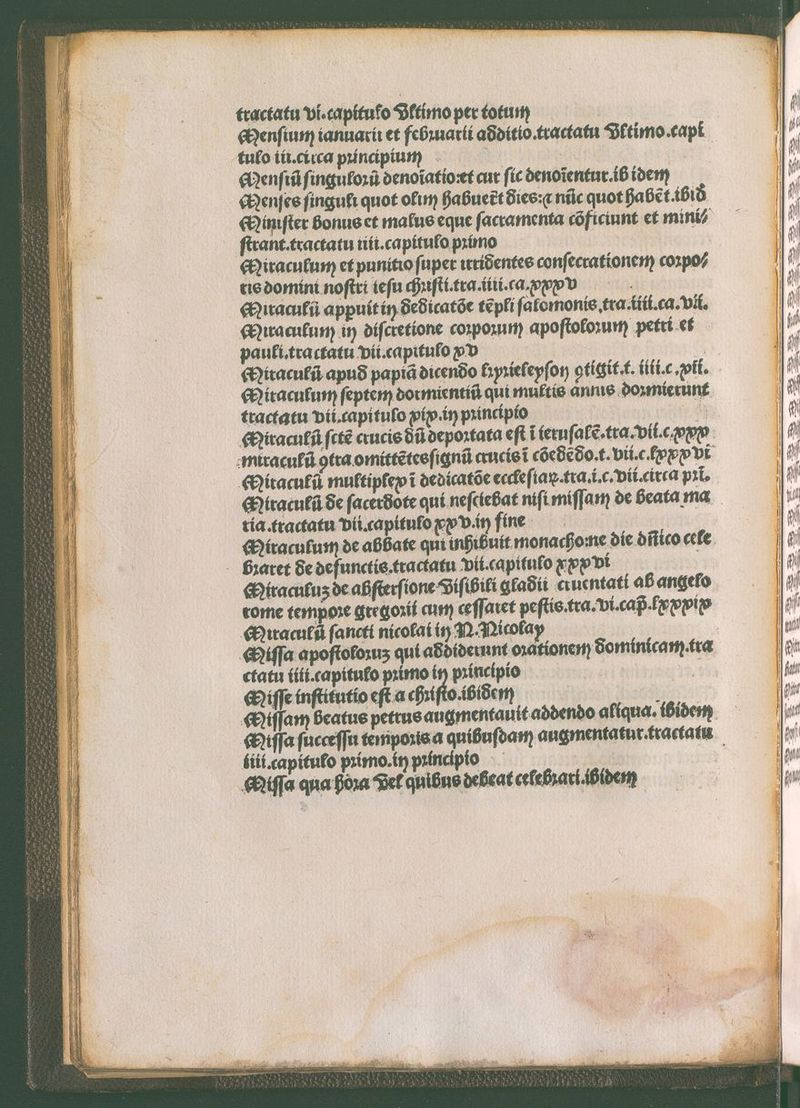 tractatu vi.capitulo vltimo per totum
Mensium ianuarii et februarii additio.tractatu vltimo.capi
tulo iii.circa principium
Mensiũ singulorũ denoĩatio:et cur sic denoĩentur.ib idem
Menses singuli quot olim habuerẽt dies:⁊ nũc quot habẽt.ibid̃
Minister bonus et malus eque sacramenta cõficiunt et mini⸗
strant.tractatu iiii.capitulo primo
Miraculum et punitio super irridentes consecrationem corpo⸗
ris domini nostri iesu christi.tra.iiii.ca.xxxv
Miraculũ appuit in dedicatõe tẽpli salomonis.tra.iiii.ca.vii.
Miraculum in discretione corporum apostolorum petri et
pauli.tractatu vii.capitulo xv
Miraculũ apud papiã dicendo kyrieleyson ꝯtigit.t. iiii.c.xii.
Miraculum septem dormientiũ qui multis annis dormierunt
tractatu vii.capitulo xix.in principio
Miraculũ sctẽ crucis dũ deportata est ĩ ierusalẽ.tra.vii.c.xxx
miraculũ ꝯtra omittẽtes signũ crucis ĩ cõedẽdo.t.vii.c.lxxxvi
Miraculũ multiplex ĩ dedicatõe ecclesiaꝝ.tra.i.c.vii.circa prĩ.
Miraculũ de sacerdote qui nesciebat nisi missam de beata ma
ria.tractatu vii.capitulo xxv.in fine
Miraculum de abbate qui inhibuit monacho:ne die dñico cele
braret de defunctis.tractatu vii.capitulo xxxvi
Miraculuz de abstersione visibili gladii cruentati ab angelo
rome tempore gregorii cum cessaret pestis.tra.vi.cap̃.lxxxix
Miraculũ sancti nicolai in N.Nicolay
Missa apostoloruz qui addiderunt orationem dominicam.tra
ctatu iiii.capitulo primo in principio
Misse institutio est a christo.ibidem
Missam beatus petrus augmentauit addendo aliqua. ibidem
Missa successu temporis a quibusdam augmentatur.tractatu
iiii.capitulo primo.in principio
Missa qua hora vel quibus debeat celebrari.ibidem